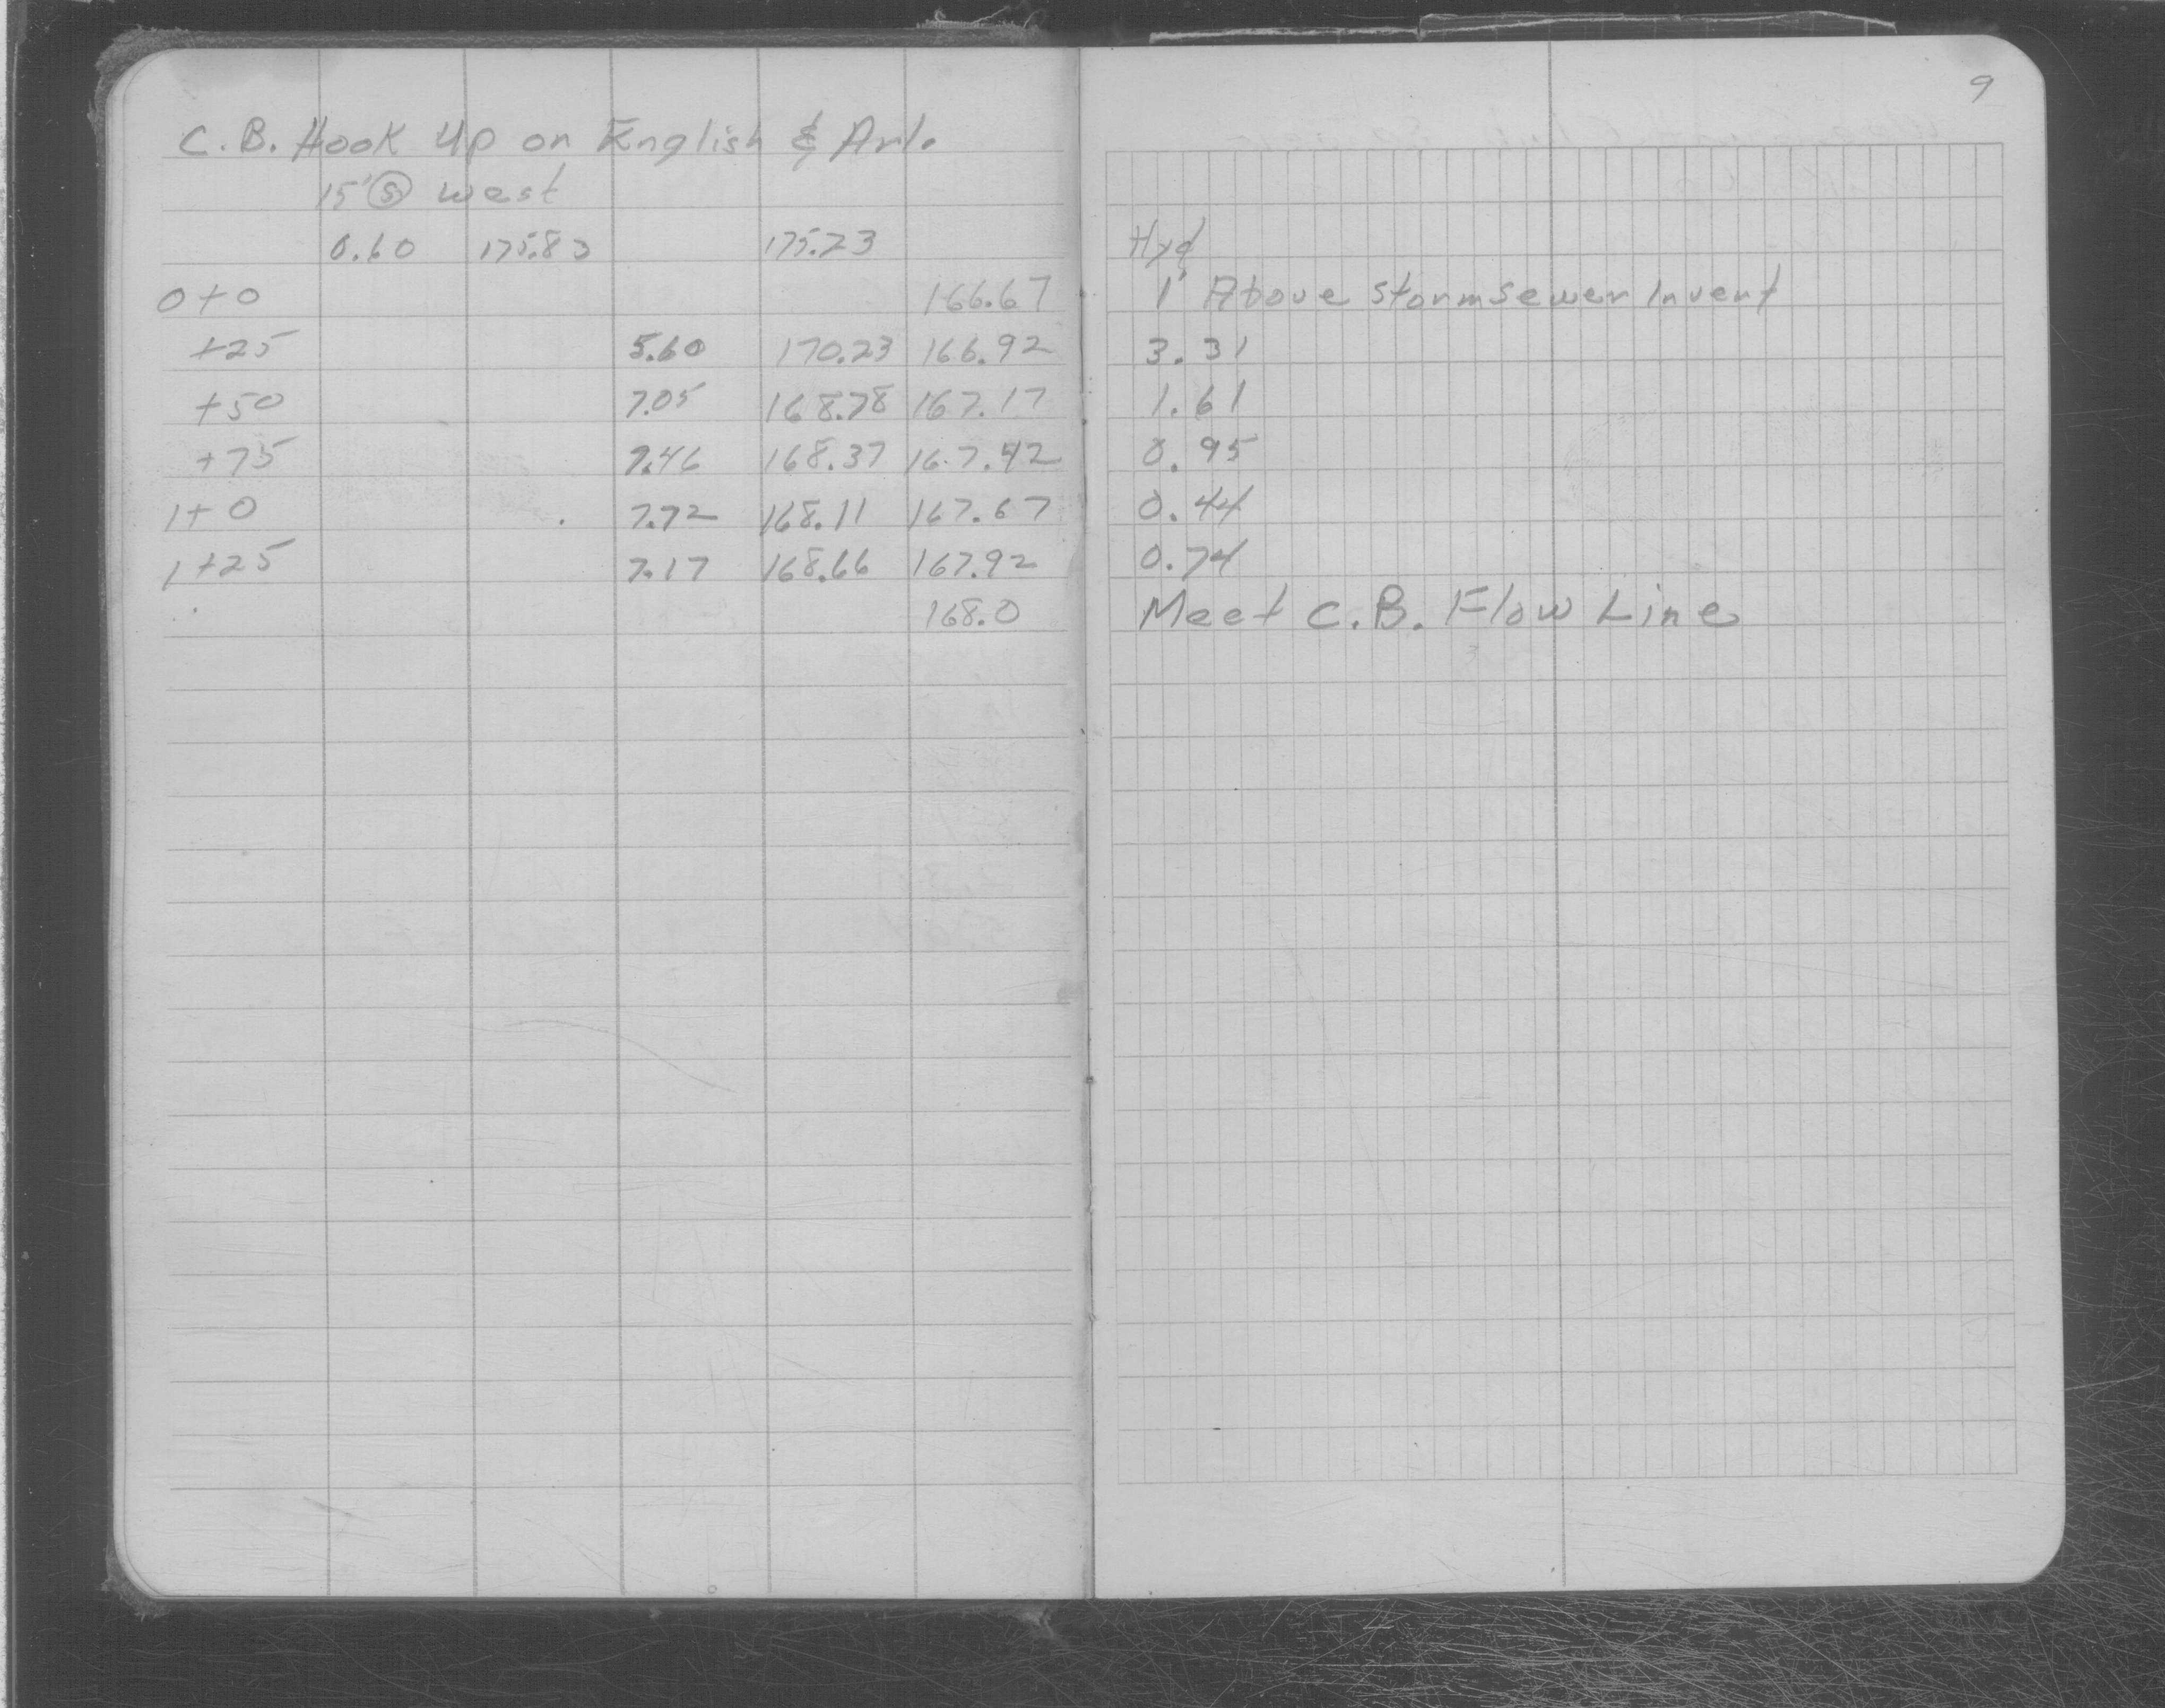 9
C.B. Hook Up on English & Arl.
15' Ⓢ west
0.60 175.83 175.23 Hyd
0+0 166.67 1' Above Storm Sewer Invert
+25 5.60 170.23 166.92 3.31
+50 7.05 168.78 167.17 1.61
+75 7.46 168.37 167.42 0.95
1+0 7.72 168.11 167.67 0.44
1+25 7.17 168.66 167.92 0.74
168.0 Meet C.B. Flow Line